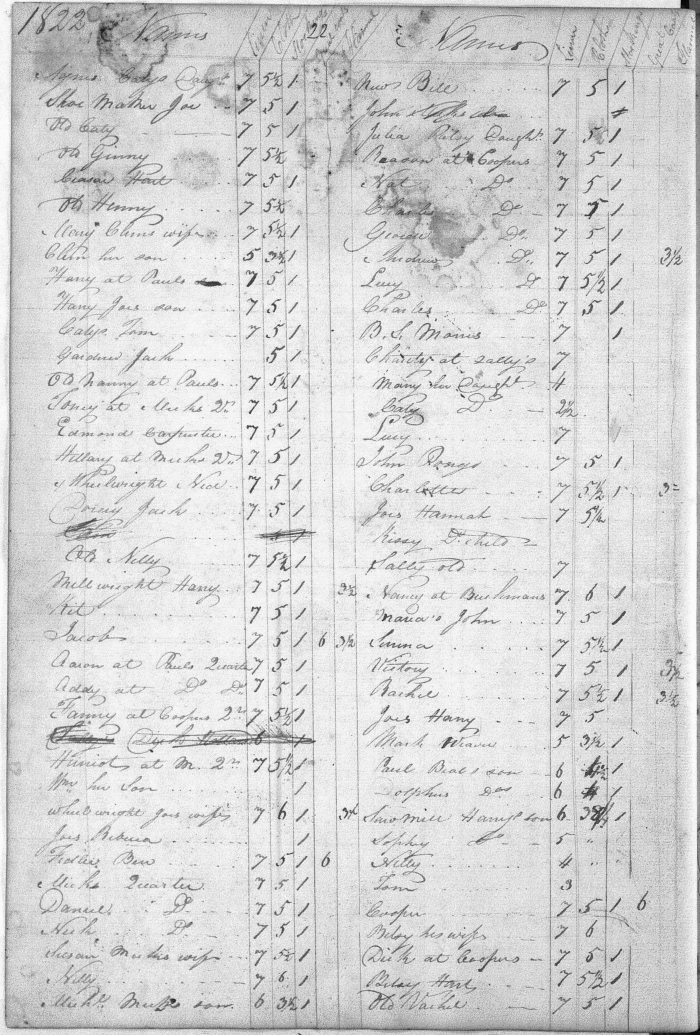 1822 Names 22
Linen Cloth
Agnus Calys Daught 7 5½ 1
Shoe Maker Joe 7 5 1
Old Caty 7 5 1
Old Ginny 7 5½
Ceasar Hart 7 5 1
Old Henny 7 5½
Mary Clems wife 7 5½ 1
Clem her son 5 3½ 1
Harry at Pauls 7 5 1
Harry Joes son 7 5 1
Calys Tom 7 5 1
Gardner Jack 5 1
Old Nanny at Pauls 7 5½ 1
Toney at Micks Qr 7 5 1
Edmond Carpenter 7 5 1
Hillary at Micks Qr 7 5 1
Wheelwright Ned 7 5 1
Jack 7 5 1
Old Nelly 7 5½ 1
Millwright Harry 7 5 1 3½
Kit 7 5 1
Jacob 7 5 1 6 3½
Aaron at Pauls Quarter 7 5 1
Addy at Do Do 7 5 1
Fanny at Coopers Qr 7 5½ 1
Harriot at M. Qr 7 5½ 1
Wm her Son 1
wheelwright Joes wife 7 6 1
Joes Rebecca 1
Fidler Ben 7 5 1 6
Micks Quarter 7 5 1
Daniel Do 7 5 1
Nick Do 7 5 1
Susan Micks wife 7 5½ 1
Nelly 7 6 1
Michl Micks son 6 3½ 1
Names
Linen Cloth Stockings
News Bill 7 5 1
John
Julia Betsy Daught 7 5 1
Reason at Coopers 7 5 1
Nat Do 7 5 1
Charles Do 7 5 1
George Do 7 5 1
Andrew Do 7 5 1 3½
Lucy Do 7 5½ 1
Charles Do 7 5 1
B. S. Morris 7 1
Charity at Sally's 7
Mary her Daught 4
Caty Do 2½
Lucy 7
John 7 5 1
Charlotte 7 5½ 1
Joes Hannah 7 5½
Kissy Do child
Sally old 7
Nancy at Bushmans 7 6 1
Maria's John 7 5 1
7 5½ 1
Victory 7 5 1 3½
Rachel 7 5½ 1 3½
Joes Harry 7 5
Mark 5 3½ 1
Paul Beals son 6 1
Dolphus Dos 6 1
Saw Mill Harrys son 6
Sophy Do 5 "
Nelly 4 "
Tom 3
Cooper 7 5 1 6
Betsy his wife 7 6
Dick at Coopers 7 5 1
Betsy Hart 7 5½ 1
Old Rachel 7 5 1